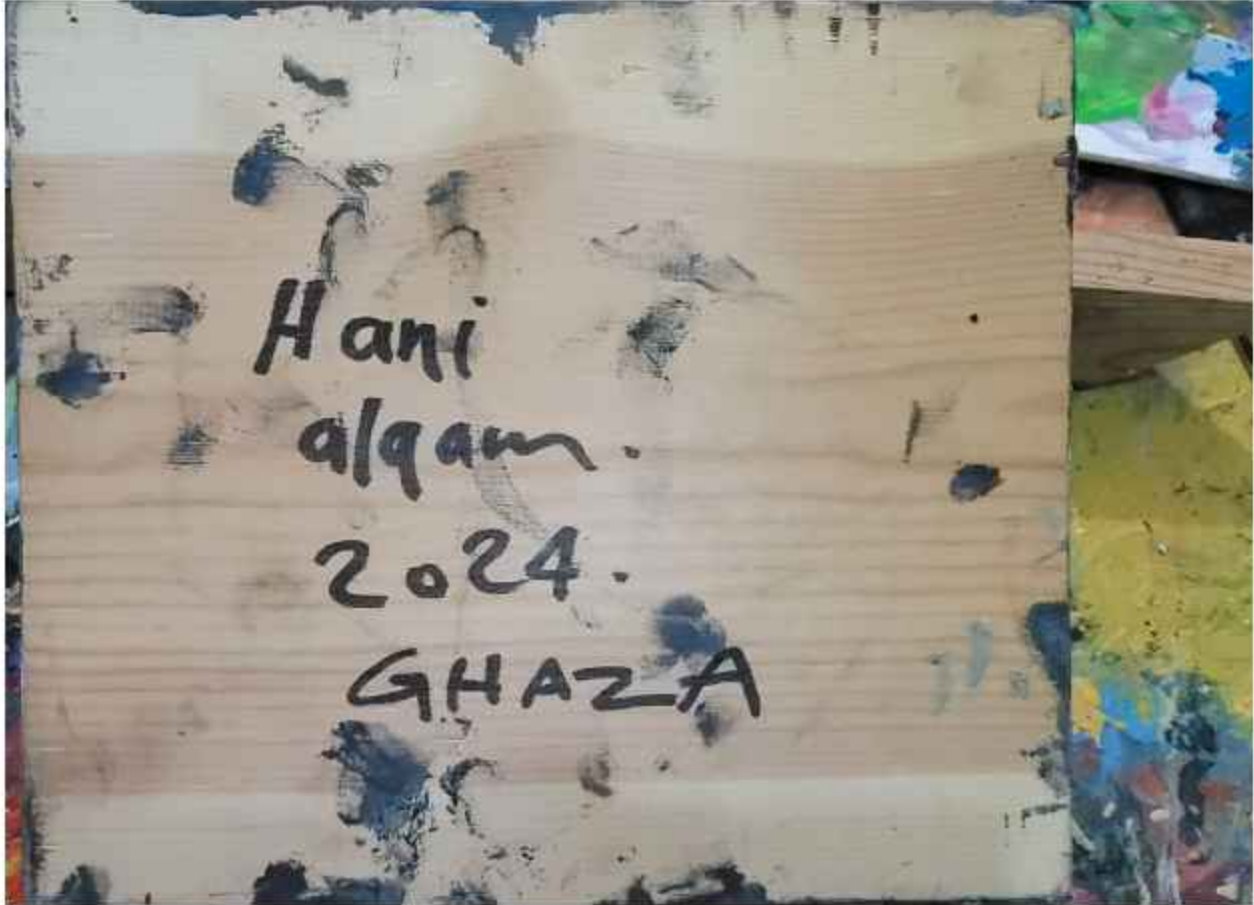 Hani
alqam.
2024.
GHAZA